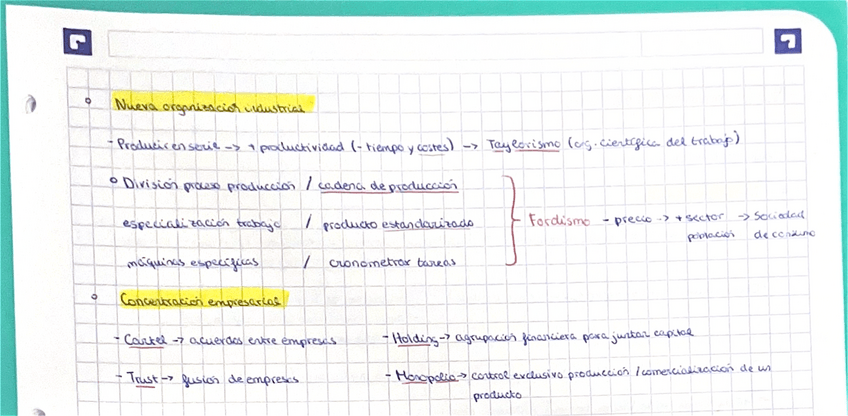 Nueva organización industrial
- Producir en serie -> + productividad (- tiempo y costes) -> Taylorismo (org. científica del trabajo)
División proceso producción / cadena de producción
especialización trabajo / producto estandarizado
máquinas específicas / cronometrar tareas
Fordismo - precio -> + sector población -> Sociedad de consumo
Concentración empresarial
- Cartel -> acuerdos entre empresas
- Holding -> agrupación financiera para juntar capital
- Trust -> fusión de empresas
- Monopolio -> control exclusivo producción / comercialización de un
producto